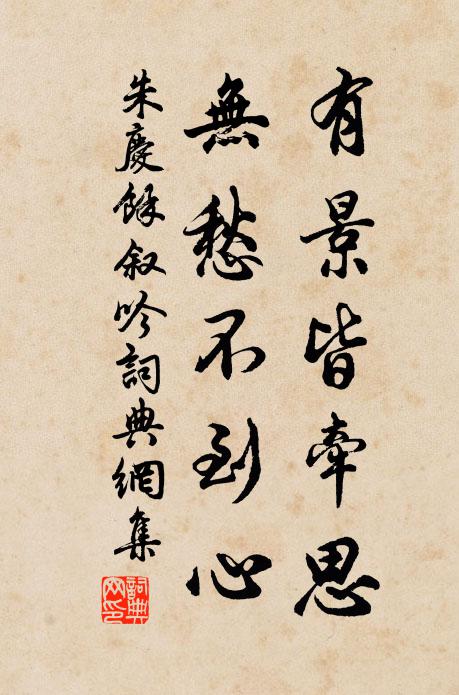 有景皆牽思
無愁不到心
朱慶餘叙吟詞典網集
詞典網印